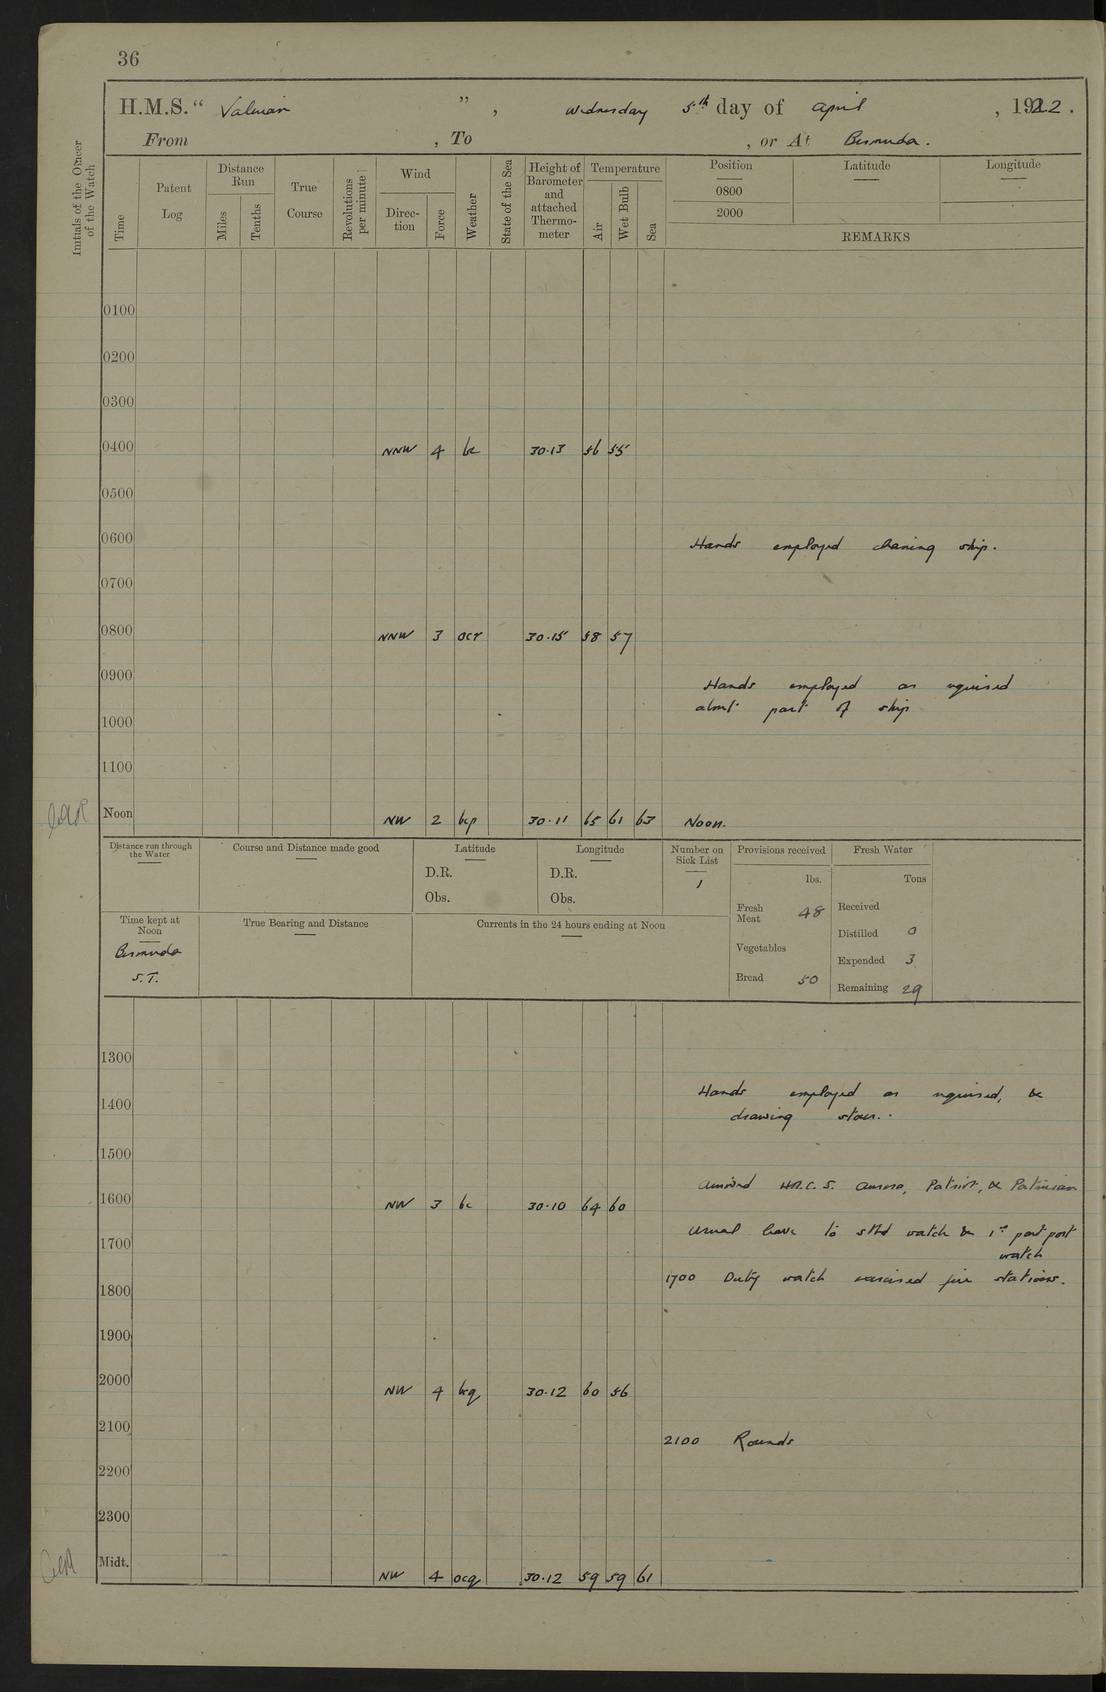 36
H.M.S. “ Valerian ” , Wednesday 5th day of April , 1922 .
From , To , or At Bermuda .
Initials of the Officer of the Watch
Time
Patent Log
Distance Run
Miles
Tenths
True Course
Revolutions per minute
Wind
Direc-tion
Force
Weather
State of the Sea
Height of Barometer and attached Thermo-meter
Temperature
Air
Wet Bulb
Sea
Position
0800
2000
Latitude
Longitude
REMARKS
0100
0200
0300
0400 NNW 4 bc 30·13 56 55
0500
0600 Hands employed cleaning ship.
0700
0800 NNW 3 ocr 30·15 58 57
0900 Hands employed as required
about part of ship
1000
1100
Noon NW 2 bcp 30·11 65 61 63 Noon.
Distance run through the Water
Course and Distance made good
Latitude
D.R.
Obs.
Longitude
D.R.
Obs.
Number on Sick List
1
Provisions received
lbs.
Fresh Meat 48
Vegetables
Bread 50
Fresh Water
Tons
Received
Distilled 0
Expended 3
Remaining 29
Time kept at Noon
Bermuda
S.T.
True Bearing and Distance
Currents in the 24 hours ending at Noon
1300
Hands employed as required, &
1400 drawing stores.
1500
Arrived H.M.C.S. Aurora, Patriot, & Patrician
1600 NW 3 bc 30·10 64 60
Usual leave to stbd watch & 1st part port
watch
1700
1700 Duty watch exercised fire stations.
1800
1900
2000 NW 4 bcq 30·12 60 56
2100
2100 Rounds
2200
2300
Midt. NW 4 ocq 30·12 59 59 61